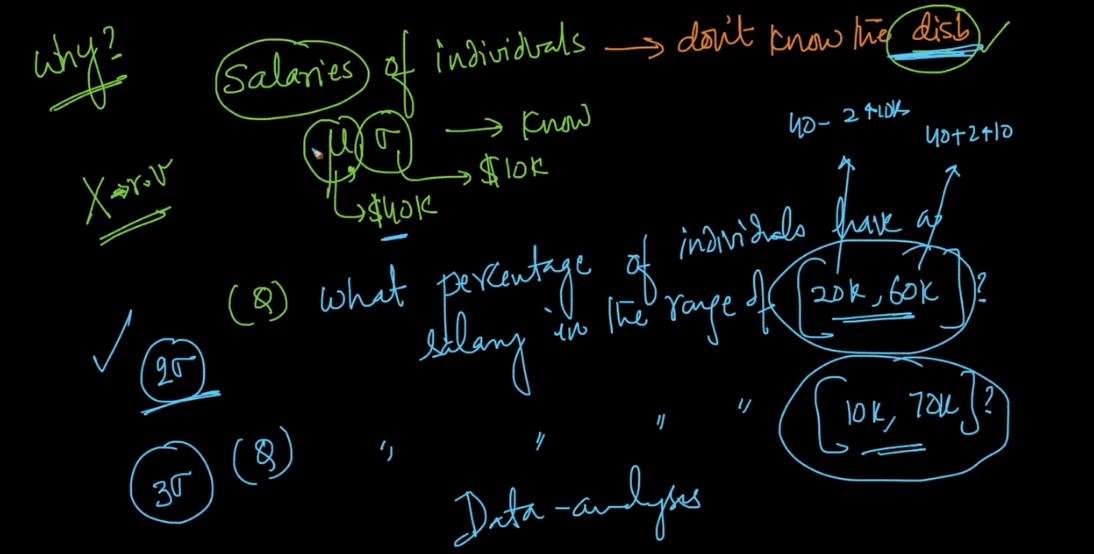 Why?
Salaries of individuals → don't know the dist ✓
μ, σ → know
$10K
$40K
X → r.v
40-2*10K
40+2*10
(Q) what percentage of individuals have a
salary in the range of [20K, 60K]?
✓ 2σ
3σ (Q) " " " " [10K, 70K]?
Data-analyses